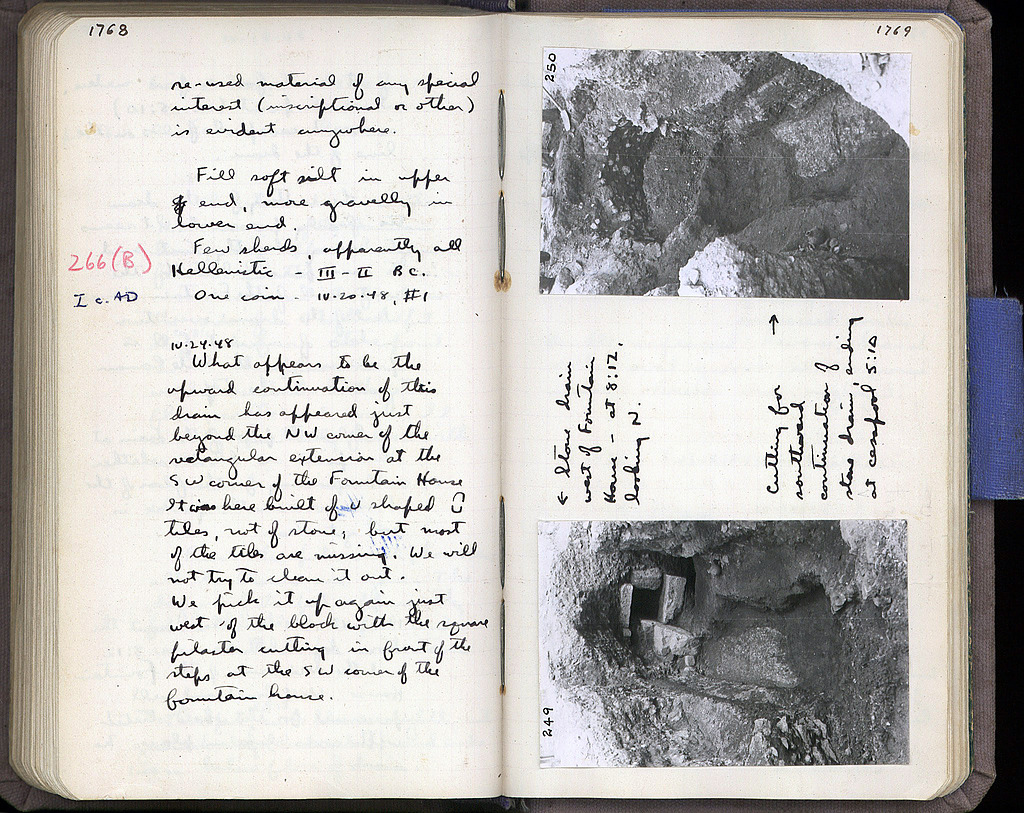 1768
re-used material of any special
interest (inscriptional or other)
is evident anywhere.
Fill soft silt in upper
end, more gravelly in
lower end.
Few sherds, apparently all
266(B)
Hellenistic - III - II B.C.
I c. AD
One coin - IV.20.48, #1
IV.24.48
What appears to be the
upward continuation of this
drain has appeared just
beyond the NW corner of the
rectangular extension at the
SW corner of the Fountain House
It was here built of U shaped
tiles, not of stone; but most
of the tiles are missing. We will
not try to clean it out.
We pick it up again just
west of the block with the square
pilaster cutting in front of the
steps at the SW corner of the
fountain house.
1769
250
← Stone drain
west of Fountain
House - at 8:12,
looking N.
→
Cutting for
southward
continuation of
stone drain, ending
at cesspool 5:10
249